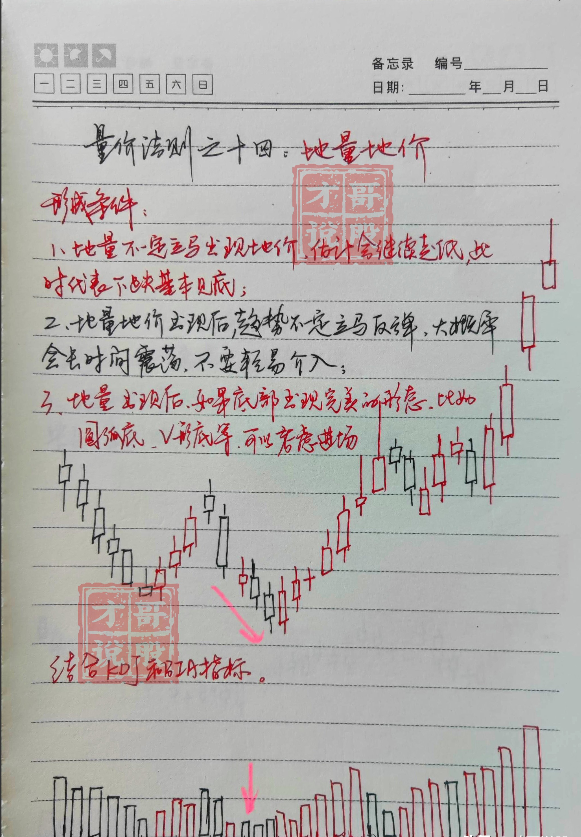 备忘录 编号
一 二 三 四 五 六 日
日期: 年 月 日
量价法则之十四:地量地价
形成条件:
1、地量不一定立马出现地价,估计会继续走低,此
时代表下跌基本见底;
2、地量地价出现后,趋势不一定立马反弹,大概率
会长时间震荡,不要轻易介入;
3、地量出现后,如果底部出现完美的形态,比如
圆弧底、V形底等,可以考虑进场
结合KDJ和 指标。
才哥说股
才哥说股